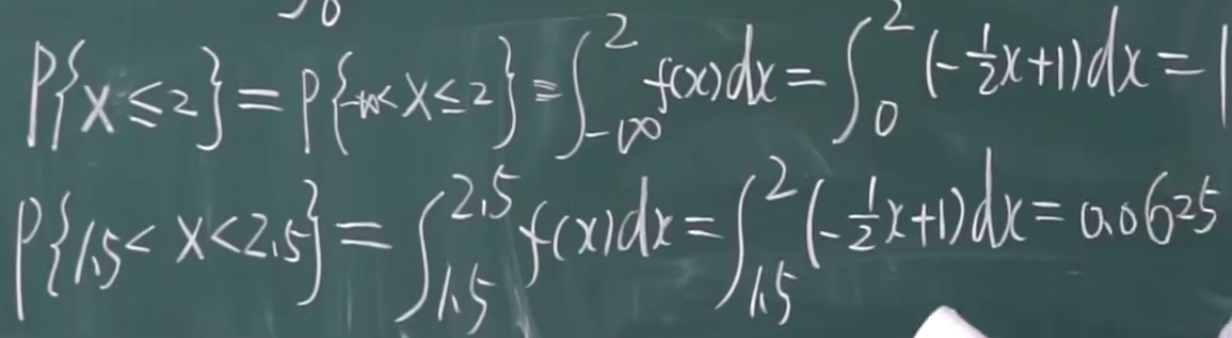 P{X≤2}=P{-∞<X≤2}=∫_{-∞}^{2} f(x)dx=∫_{0}^{2}(-\frac{1}{2}x+1)dx=1
P{1.5<X<2.5}=∫_{1.5}^{2.5} f(x)dx=∫_{1.5}^{2}(-\frac{1}{2}x+1)dx=0.0625